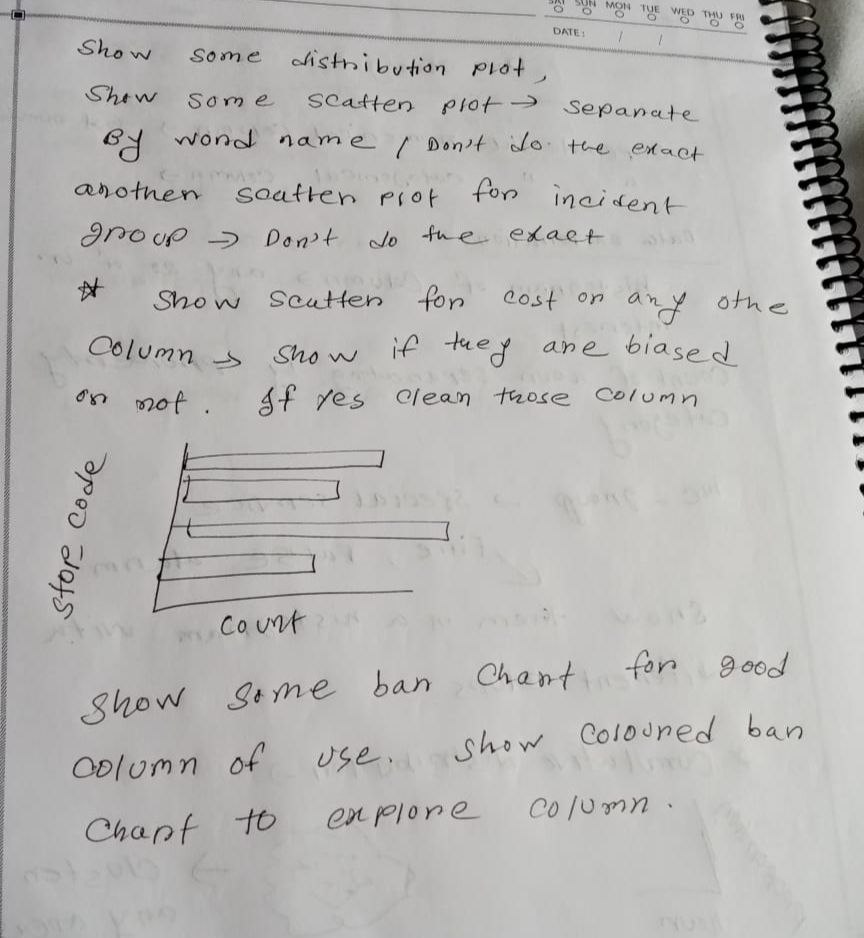 SAT SUN MON TUE WED THU FRI
DATE: / /
Show some distribution plot,
Show some scatter plot → separate
By word name / Don't do the exact
another scatter plot for incident
group → Don't do the exact
* Show scatter for cost or any othe
Column → Show if they are biased
or not. If yes clean those column
Stop_code
Count
Show some bar chart for good
column of use. Show coloured bar
Chart to explore column.